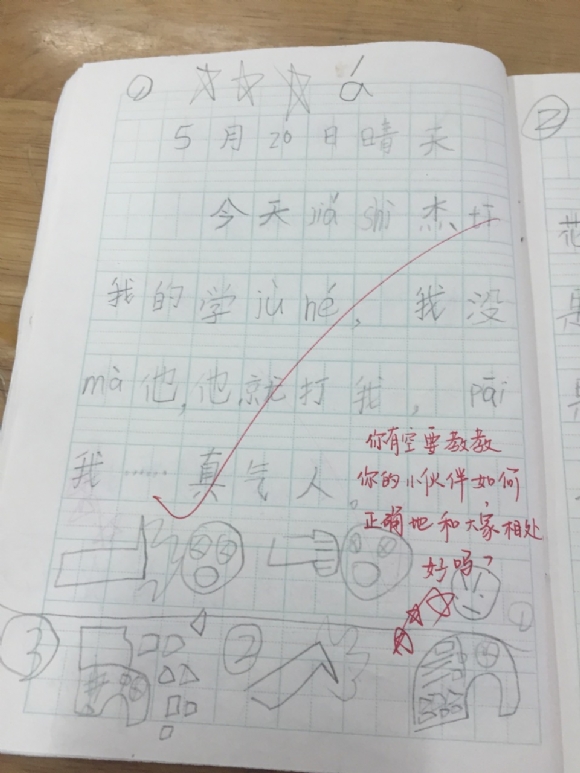 ① á
5月20日晴天
今天jiǎ shì 杰打
我的学jù hé，我没
mà他，他就打我，pāi
我……真气人。
你有空要教教
你的小伙伴如何
正确地和大家相处
好吗？
①
③ ②
②